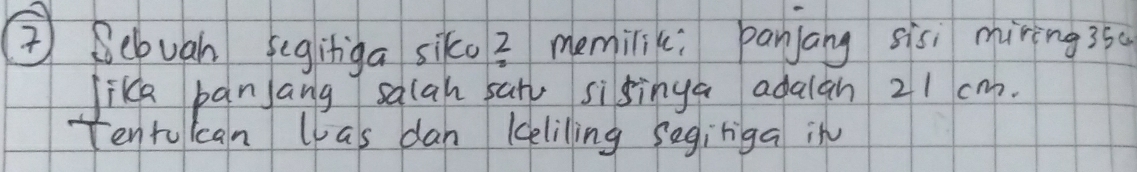 7 Sebuah segitiga siku2 memiliki panjang sisi miring 35c
Jika panjang salah satu sisinya adalah 21 cm.
Tentukan luas dan keliling segitiga itu